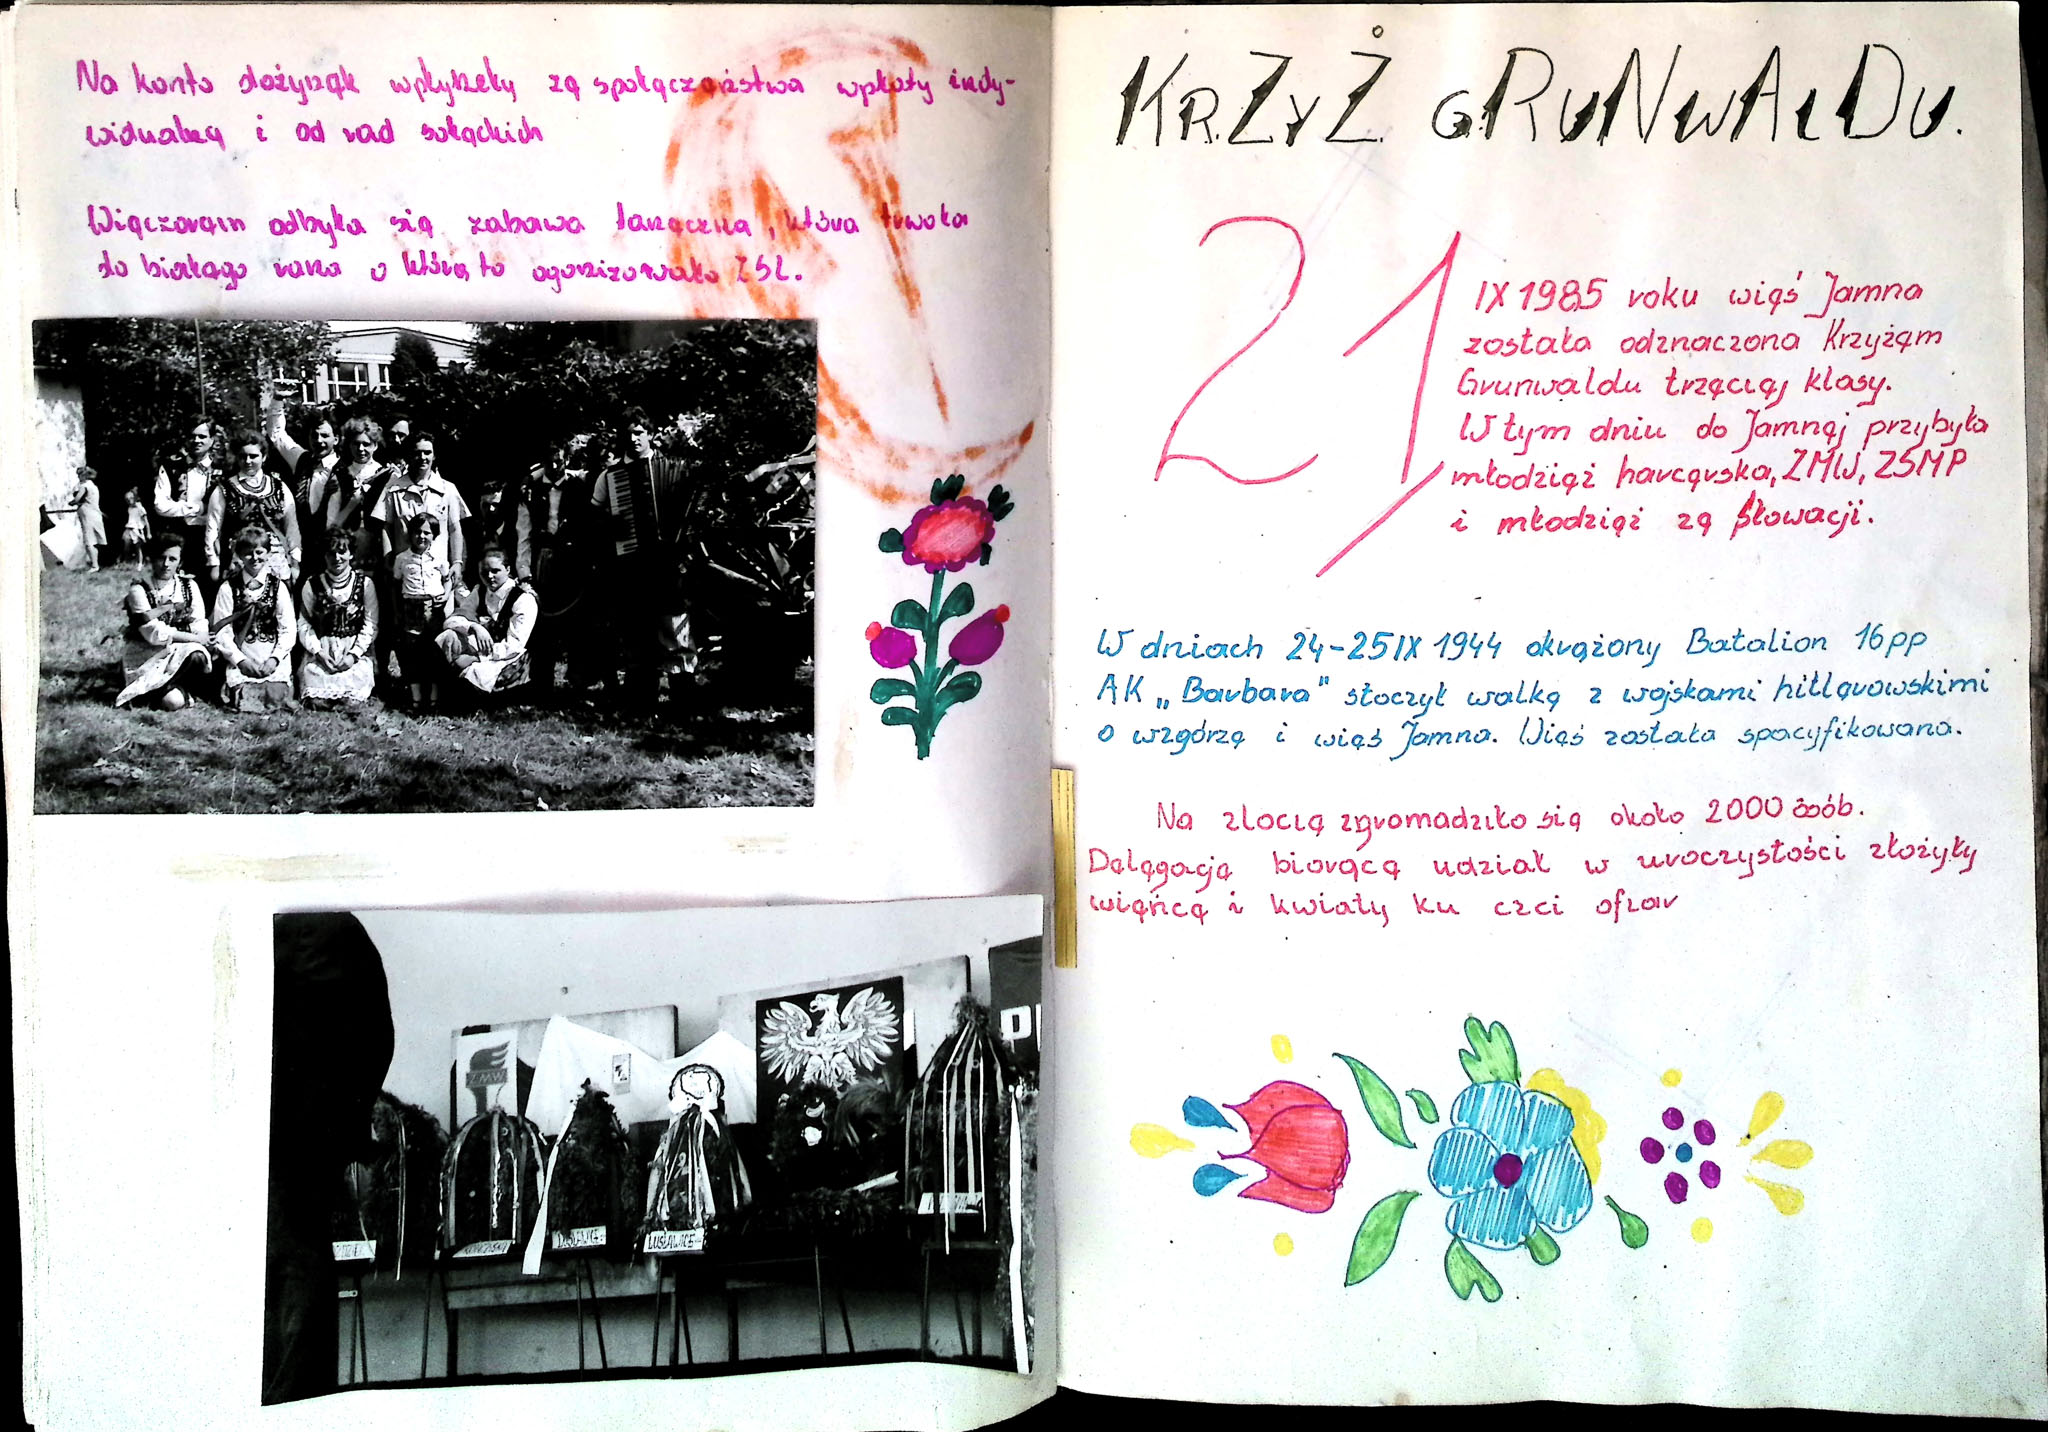 Na konto dożynek wpłynęły ze społeczeństwa wpłaty indy-
widualne i od rad sołeckich
Wieczorem odbyła się zabawa taneczna, która trwała
do białego rana a którą to ogranizowało ZSL.
ZMW
LUSŁAWICE
KRZYŻ GRUNWALDU.
21
IX 1985 roku wieś Jamna
została odznaczona Krzyżem
Grunwaldu trzeciej klasy.
W tym dniu do Jamnej przybyła
młodzież harcerska, ZMW, ZSMP
i młodzież ze Słowacji.
W dniach 24-25 IX 1944 okrążony Batalion 16pp
AK „Barbara" stoczył walkę z wojskami hitlerowskimi
o wzgórze i wieś Jamna. Wieś została spacyfikowana.
Na zlocie zgromadziło się około 2000 osób.
Delegacje biorące udział w uroczystości złożyły
wieńce i kwiaty ku czci ofiar